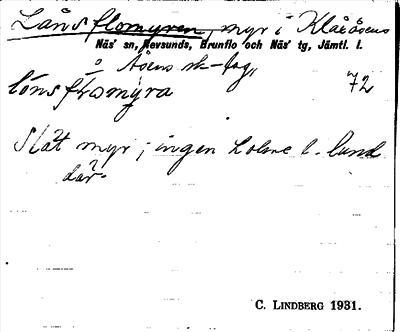 Lånsflomyren, myr i Klåråsens
Näs' sn, Revsunds, Brunflo och Näs' tg, Jämtl. l.
o Åsens sk-lag,
lónsflòmýra 72
Slåt myr; ingen holme l. lund
där.
C. LINDBERG 1931.